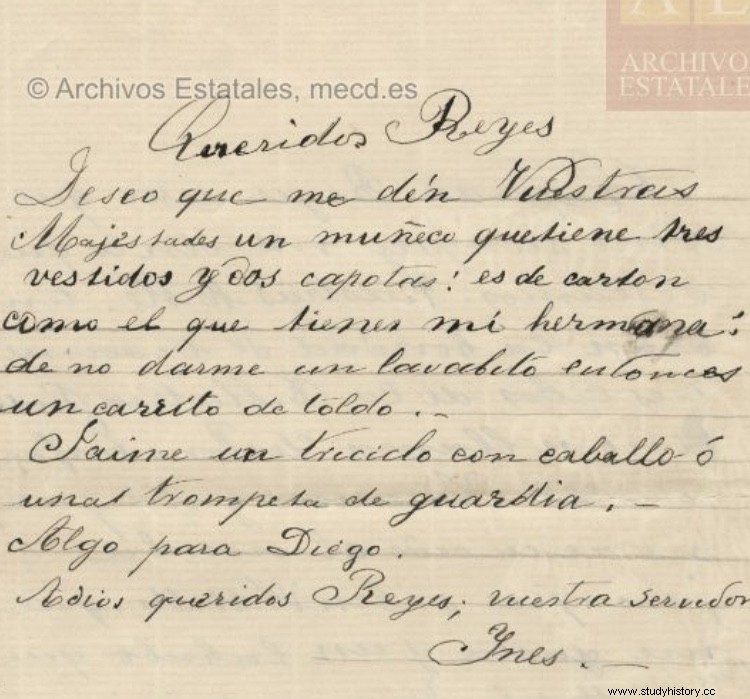 ARCHIVOS
ESTATALE
© Archivos Estatales, mecd.es
Queridos Reyes
Deseo que me dén Vuestras
Majestades un muñeco quetiene tres
vestidos y dos capotas: es de carton
como el que tienes mi hermana:
de no darme un lavabito entonces
un carrito de toldo. —
Jaime un triciclo con caballo ó
una trompeta de guardia. —
Algo para Diego.
Adios queridos Reyes; vuestra servidor
Ynes. —
www.studyhistory.cc